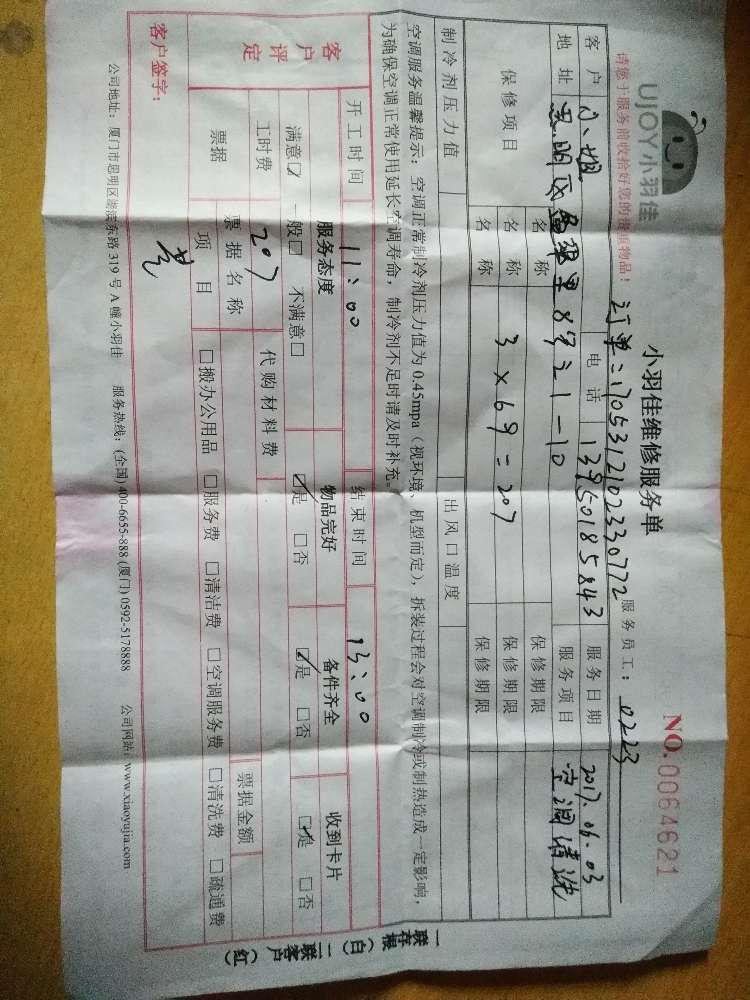 UJOY小羽佳
小羽佳维修服务单
NO.0064621
请您于服务前收拾好您的贵重物品!
订单:17053121023330772
服务员工: 0223
客户 小姐 电话 13950185843 服务日期 2017.06.03
地址 思明区 里8号21-10 服务项目 空调清洗
保修项目 名称 保修期限
名称 3×69=207 保修期限
名称 保修期限
制冷剂压力值 出风口温度
空调服务温馨提示:空调正常制冷剂压力值为0.45mpa(视环境、机型而定),拆装过程会对空调制冷或制热造成一定影响,
为确保空调正常使用延长空调寿命,制冷剂不足时请及时补充。
开工时间 11:00 结束时间 13:00
客户评定
服务态度 物品完好 备件齐全 收到卡片
满意☑ 一般□ 不满意□ ☑是 □否 ☑是 □否 ☑是 □否
工时费 207 代购材料费
票据 票据名称 票据金额
项目 □搬办公用品 □服务费 □清洁费 □空调服务费 □清洗费 □疏通费
客户签字:
公司地址:厦门市思明区湖滨东路319号A幢小羽佳 服务热线:(全国)400-6655-888 (厦门)0592-5178888 公司网站:www.xiaoyujia.com
一联存根(白) 二联客户(红)